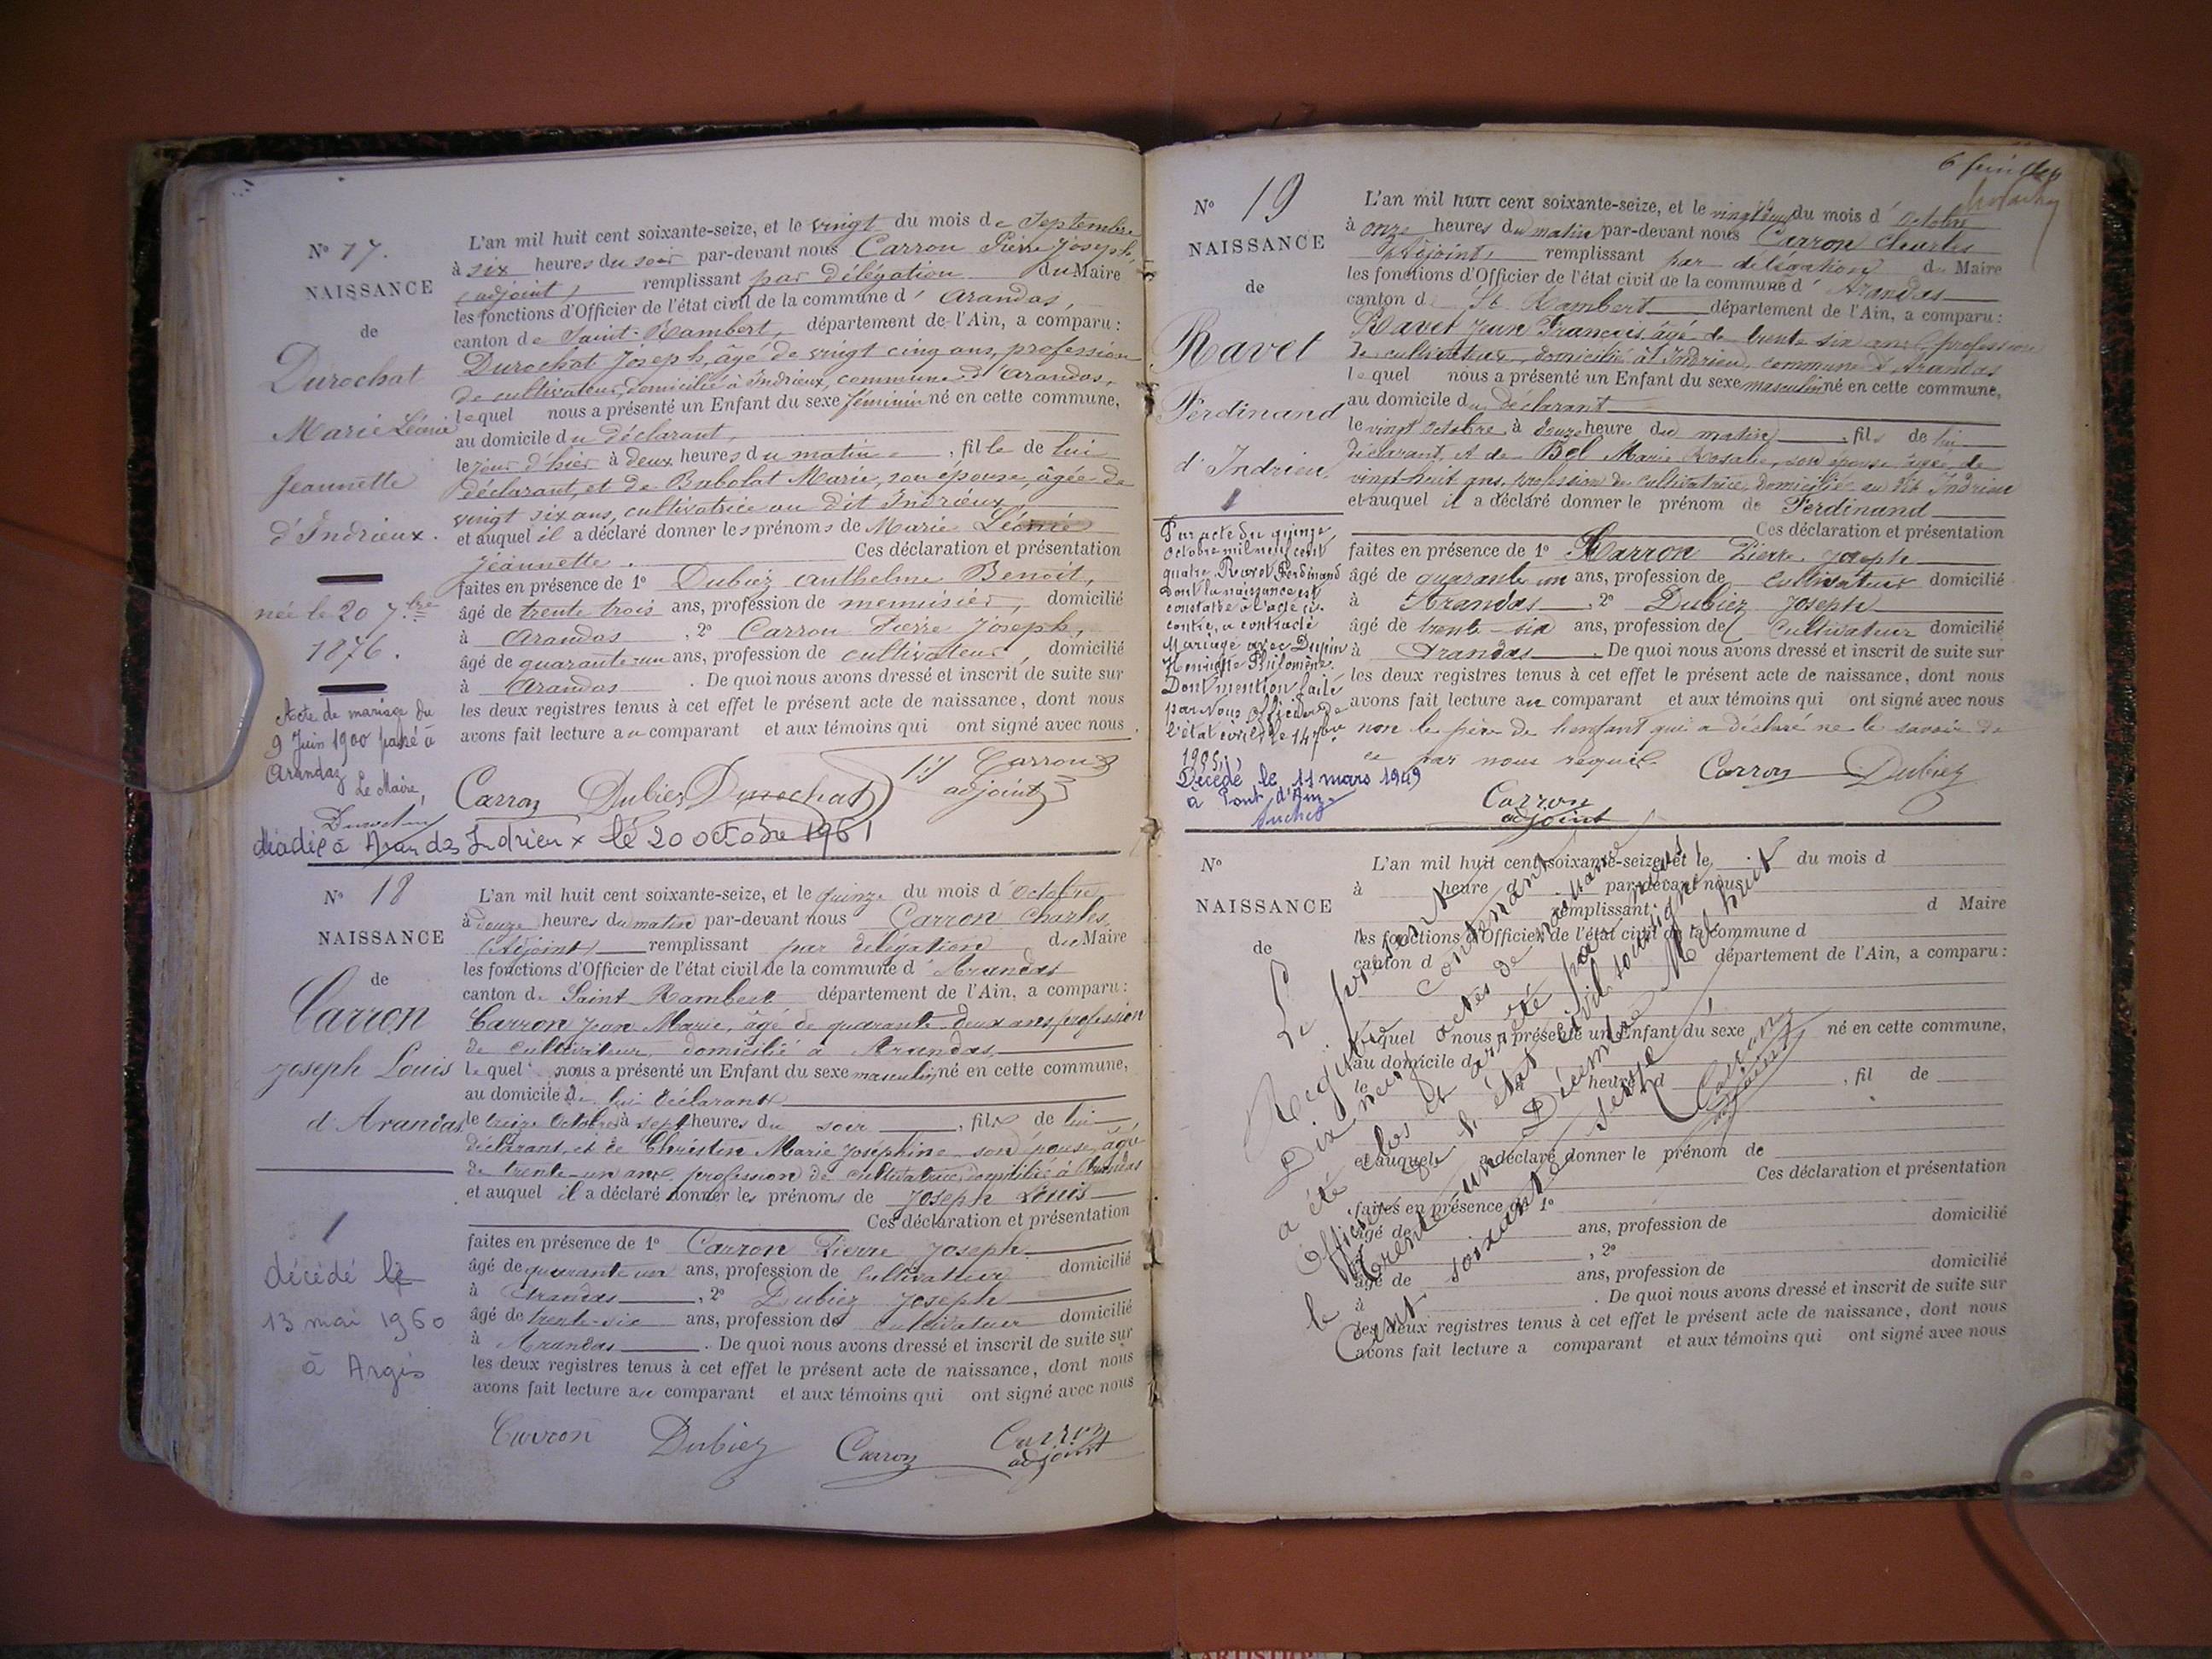 N° 17.
NAISSANCE
de
Durochat
Marie Léonie
Jeannette
d'Indrieux.
née le 20 7.bre
1876.
Acte de mariage du
9 Juin 1900 passé à
Arandaz
Le Maire,
L'an mil huit cent soixante-seize, et le vingt du mois de Septembre
à six heures du soir par-devant nous Carron Pierre Joseph,
(adjoint) remplissant par délégation du Maire
les fonctions d'Officier de l'état civil de la commune d'Arandas,
canton de Saint-Rambert, département de l'Ain, a comparu :
Durochat Joseph, âgé de vingt cinq ans, profession
de cultivateur, domicilié à Indrieux, commune d'Arandas,
lequel nous a présenté un Enfant du sexe féminin né en cette commune,
au domicile du déclarant,
le jour d'hier à deux heures du matin, fille de lui
déclarant, et de Babolat Marie, son épouse, âgée de
vingt six ans, cultivatrice au dit Indrieux,
et auquel il a déclaré donner les prénoms de Marie Léonie
Jeannette. Ces déclaration et présentation
faites en présence de 1° Dubiez Anthelme Benoit,
âgé de trente trois ans, profession de menuisier, domicilié
à Arandas, 2° Carron Pierre Joseph,
âgé de quarante-un ans, profession de cultivateur, domicilié
à Arandas. De quoi nous avons dressé et inscrit de suite sur
les deux registres tenus à cet effet le présent acte de naissance, dont nous
avons fait lecture au comparant et aux témoins qui ont signé avec nous.
Carron Dubiez Durochat Carron
adjoint
Indrieux le 20 octobre 1961
N° 18
NAISSANCE
de
Carron
Joseph Louis
d'Arandas
décédé le
13 mai 1960
à Argis
L'an mil huit cent soixante-seize, et le quinze du mois d'Octobre
à douze heures du matin par-devant nous Carron Charles
(Adjoint) remplissant par délégation du Maire
les fonctions d'Officier de l'état civil de la commune d'Arandas
canton de Saint Rambert département de l'Ain, a comparu :
Carron Jean Marie, âgé de quarante-deux ans, profession
de cultivateur, domicilié à Arandas,
lequel nous a présenté un Enfant du sexe masculin né en cette commune,
au domicile de lui déclarant
le treize Octobre à sept heures du soir, fils de lui
déclarant, et de Christin Marie Joséphine son épouse, âgée
de trente-un ans, profession de cultivatrice, domiciliée à Arandas
et auquel il a déclaré donner les prénoms de Joseph Louis
Ces déclaration et présentation
faites en présence de 1° Carron Pierre Joseph
âgé de quarante un ans, profession de Cultivateur domicilié
à Arandas, 2° Dubiez Joseph
âgé de trente-six ans, profession de cultivateur domicilié
à Arandas. De quoi nous avons dressé et inscrit de suite sur
les deux registres tenus à cet effet le présent acte de naissance, dont nous
avons fait lecture au comparant et aux témoins qui ont signé avec nous
Carron Dubiez Carron Carron
adjoint
N° 19
NAISSANCE
de
Ravet
Ferdinand
d'Indrieu
Par acte du quinze
octobre mil neuf cent
quatre Ravet Ferdinand
Dont la naissance est
constatée à l'acte ci-
contre, a contracté
Mariage avec Dupin
Henriette Philomène.
Dont mention faite
par Nous Officier de
l'état civil le 14
1905.
Décédé le 11 mars 1949
à Pont d'Ain
6 feuillet
L'an mil huit cent soixante-seize, et le vingt du mois d'octobre
à onze heures du matin par-devant nous Carron Charles
Adjoint, remplissant par délégation du Maire
les fonctions d'Officier de l'état civil de la commune d'Arandas
canton de St Rambert département de l'Ain, a comparu :
Ravet Jean François, âgé de trente six ans, profession
de cultivateur, domicilié à Indrieu, commune d'Arandas
lequel nous a présenté un Enfant du sexe masculin né en cette commune,
au domicile du déclarant
le vingt octobre à douze heure du matin, fils de lui
déclarant, et de Bel Marie Rosalie, son épouse âgée de
vingt-huit ans, profession de cultivatrice, domiciliée au dit Indrieu
et auquel il a déclaré donner le prénom de Ferdinand
Ces déclaration et présentation
faites en présence de 1° Carron Pierre Joseph
âgé de quarante un ans, profession de cultivateur domicilié
à Arandas, 2° Dubiez Joseph
âgé de trente-six ans, profession de Cultivateur domicilié
à Arandas. De quoi nous avons dressé et inscrit de suite sur
les deux registres tenus à cet effet le présent acte de naissance, dont nous
avons fait lecture au comparant et aux témoins qui ont signé avec nous
non le père de l'enfant qui a déclaré ne le savoir de
ce par nous requis. Carron Dubiez
Carron
adjoint
N°
NAISSANCE
de
L'an mil huit cent soixante-seize, et le du mois d
à heure d par-devant nous
remplissant d Maire
les fonctions d'Officier de l'état civil de la commune d
canton d département de l'Ain, a comparu :
lequel nous a présenté un Enfant du sexe né en cette commune,
au domicile d
le heure d , fil de
et auquel a déclaré donner le prénom de
Ces déclaration et présentation
faites en présence de 1°
âgé de ans, profession de domicilié
, 2°
âgé de ans, profession de domicilié
à . De quoi nous avons dressé et inscrit de suite sur
les deux registres tenus à cet effet le présent acte de naissance, dont nous
avons fait lecture a comparant et aux témoins qui ont signé avec nous
Le présent
Registre contenant
Dix neuf actes de naissance
a été clos et arrêté par nous
Officier de l'état civil soussigné
le trente un Décembre Mil huit
Cent soixante seize
Carron
adjoint